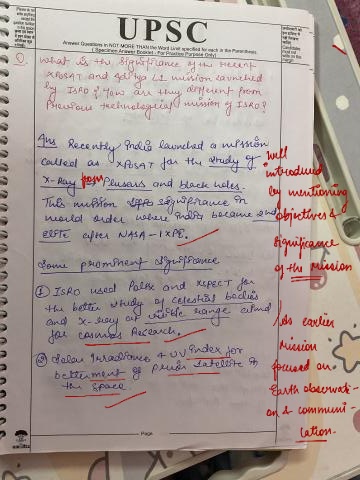 UPSC
Answer Questions in NOT MORE THAN the Word Limit specified for each in the Parenthesis.
( Specimen Answer Booklet - For Practice Purpose Only)
Q. What is the significance of the recent
XPOSAT and Aditya L1 mission launched
by ISRO? How are they different from
Previous technological mission of ISRO?
Ans Recently India launched a mission
called as XPOSAT for the study of
X-Ray from Pulsars and black holes.
This mission significance in
world order where India became 2nd
elite after NASA-IXPE.
Some prominent significance
① ISRO used Polix and XSPECT for
the better study of celestial bodies
and X-ray at range
for cosmos Research.
② Solar Irradiance & UV index for
betterment of satellite in
the space
Page
Well
introduced
by mentioning
objectives &
significance
of the mission
earlier
Mission
focused on
Earth observati-
on & communi-
cation.
Candidates
must not
write on
this margin